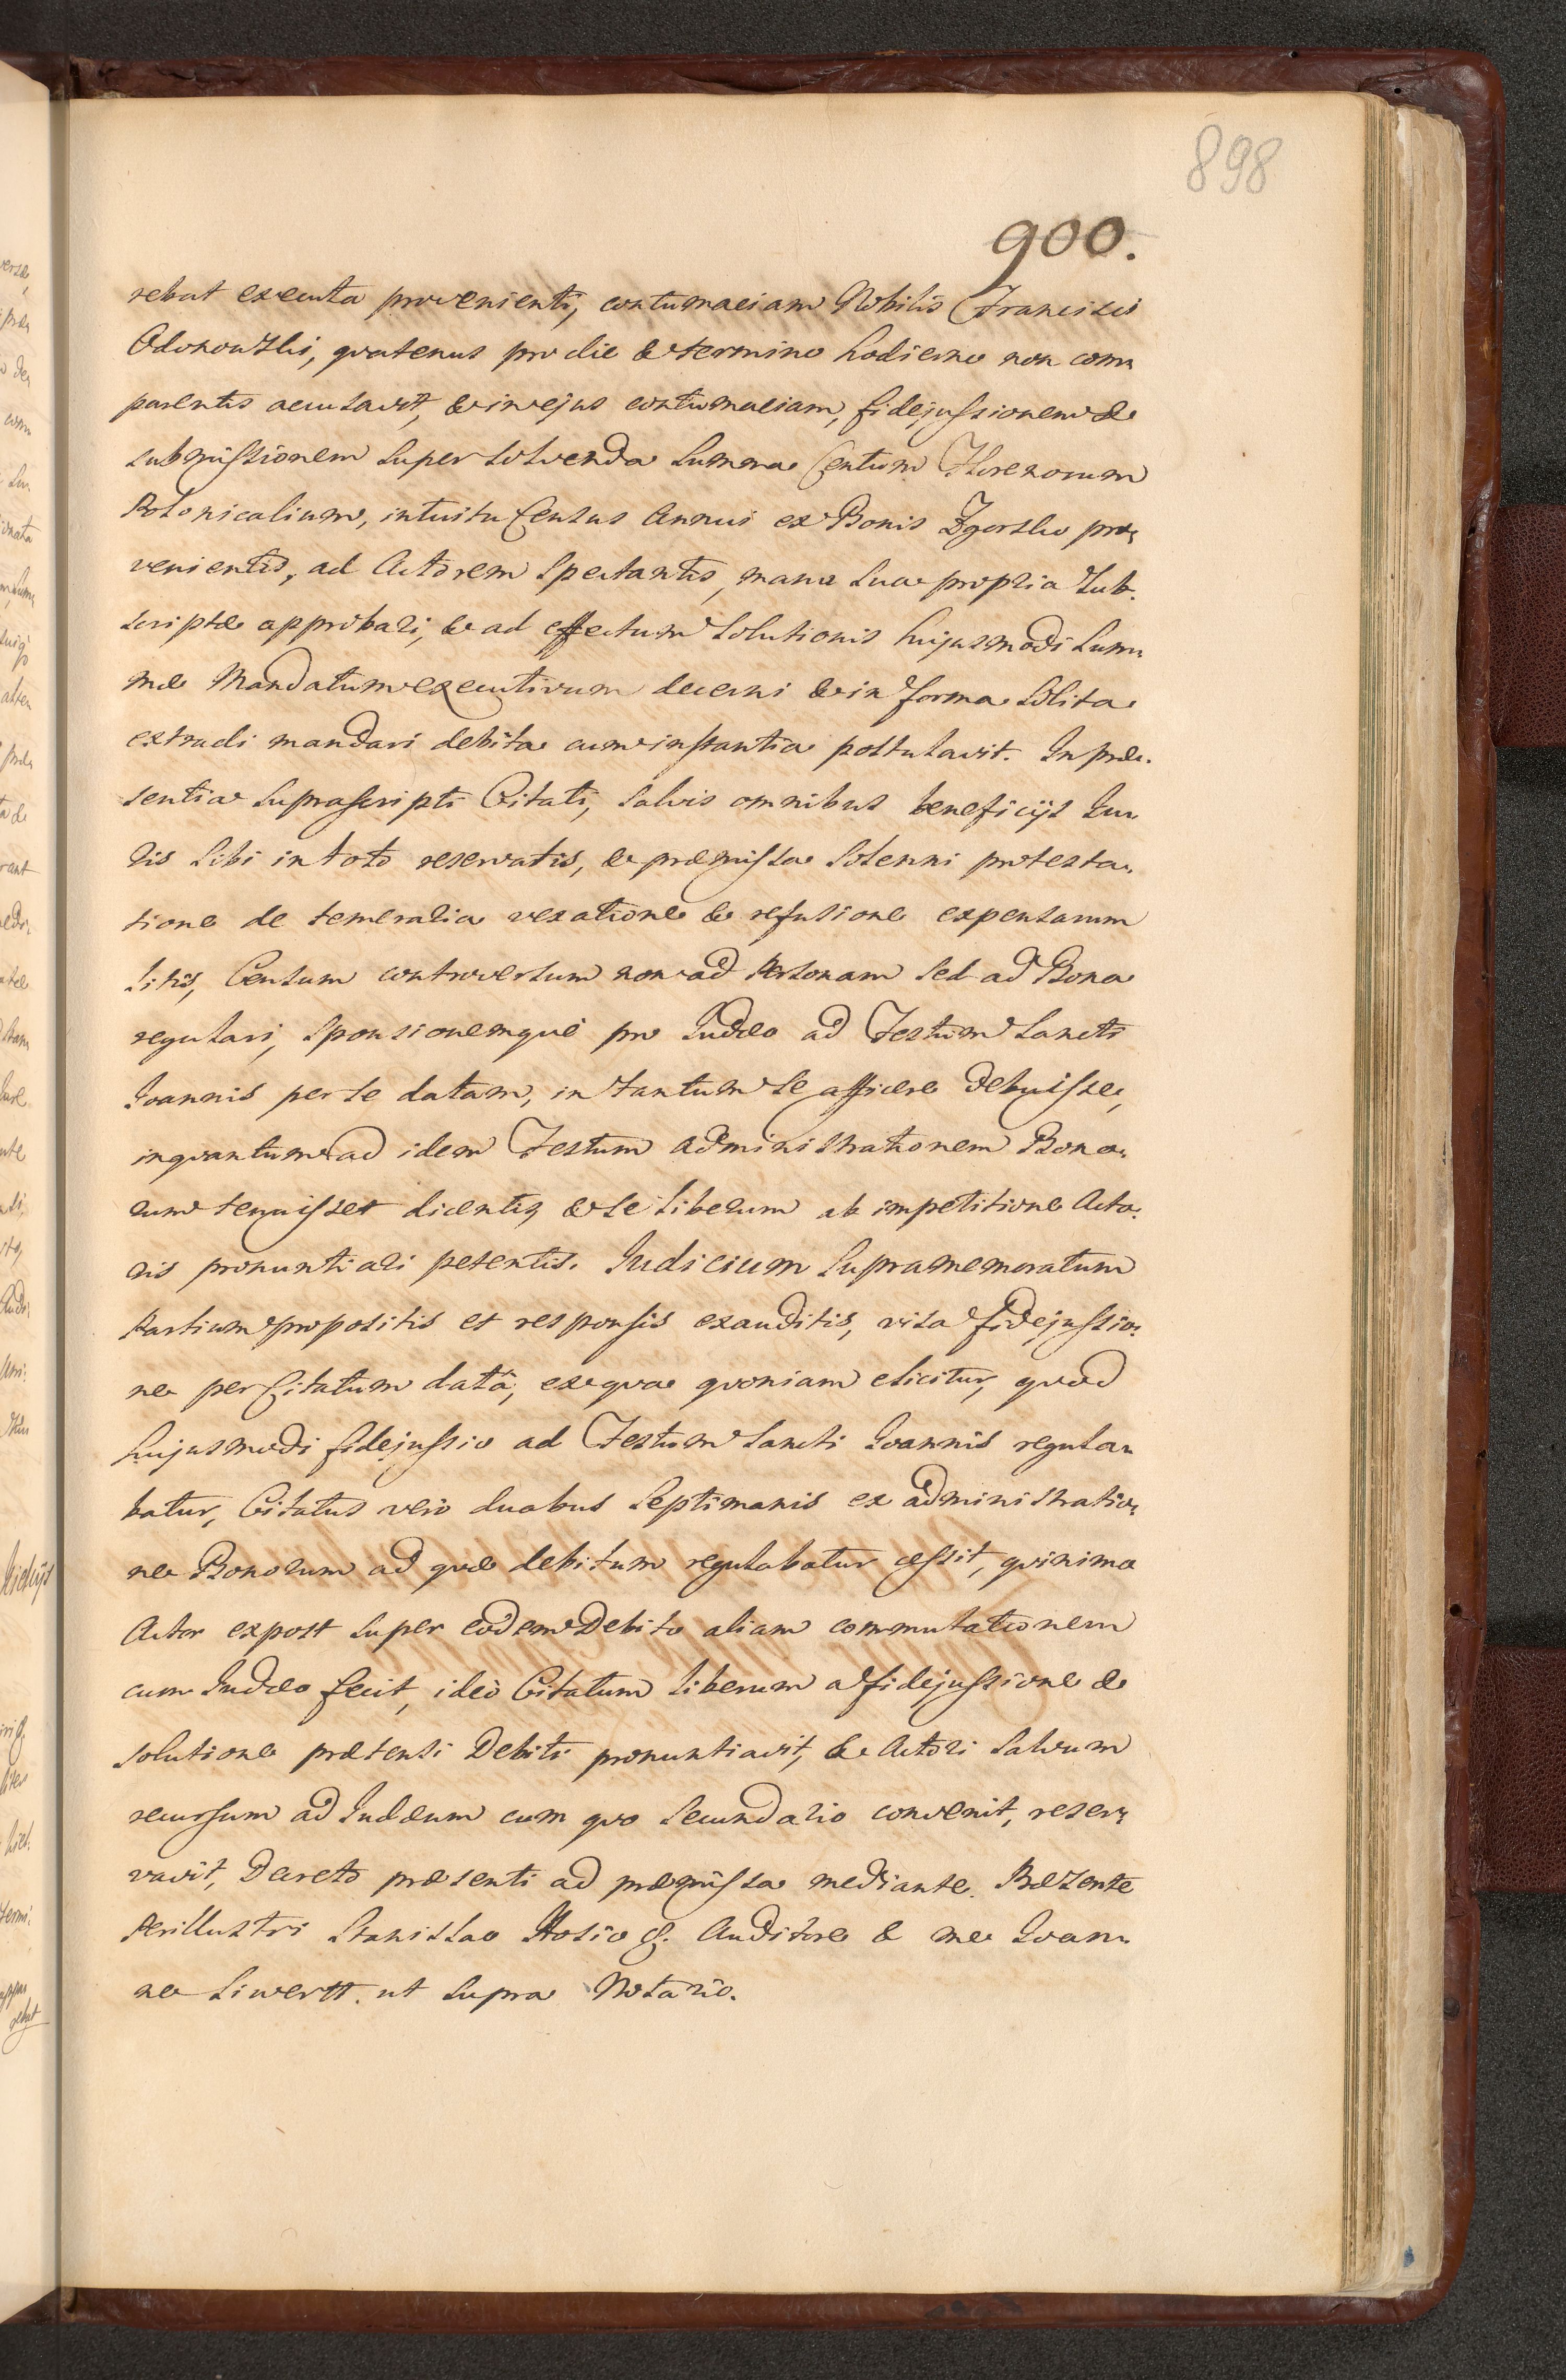 898
900.
rebat executa provenienti, contumaciam Nobilis Francisci
Odonowski, qvatenus pro die & termino hodierno non com„
parentis accusavit, & in ejus contumaciam, fidejussionem &
submissionem super solvenda summa Centum Florenorum
Polonicalium, intuitu Census Annui ex Bonis Zgorsko pro„
venientis, ad Actorem spectantis, manu sua propria sub„
scriptæ approbari, & ad effectum solutionis hujusmodi sum„
mæ Mandatum executivum decerni & in forma solita
extradi mandari debita cum instantia postulavit. In præ„
sentia suprascripti Citati, salvis omnibus beneficijs Ju„
ris sibi in toto reservatis, & præmissa solenni protesta„
tione de temeraria vexatione & refusione expensarum
litis, Censum controversum non ad Personam sed ad Bona
regulari, sponsionemque pro Judæo ad Festum Sancti
Joannis per se datam, in tantum se afficere debuisse,
inqvantum ad idem Festum administrationem Bono„
rum tenuisset dicentis, & se liberum ab impetitione Acto„
ris pronuntiari petentis. Judicium supramemoratum
Partium propositis et responsis exauditis, visa fidejussio„
ne per Citatum datâ, ex qva qvoniam elicitur, qvod
hujusmodi fidejussio ad Festum Sancti Joannis regula„
batur, Citatus vero duabus Septimanis ex administratio„
ne Bonorum ad qvæ debitum regulabatur cessit, qvinimo
Actor expost super eodem Debito aliam commutationem
cum Judæo fecit, ideò Citatum liberum a fidejussione &
solutione prætensi Debiti pronuntiavit, & Actori salvum
recursum ad Judæum cum qvo secundario convenit, reser„
vavit, Decreto præsenti ad præmissa mediante. Præsente
Perillustri Stanislao Hosio G. Auditore & me Joan„
ne Siwertt. ut supra Notario.